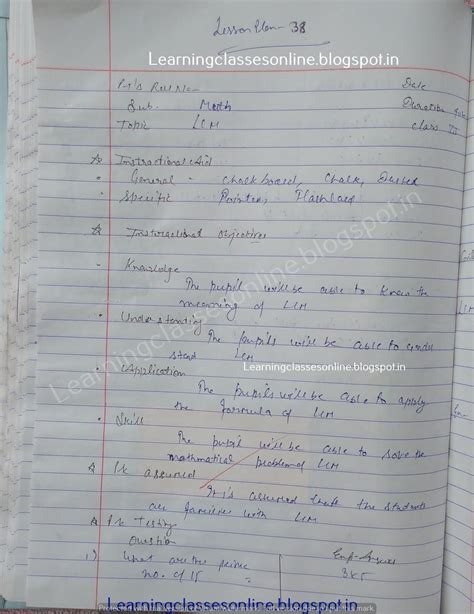 Lesson Plan - 38
Learningclassesonline.blogspot.in
P.T's Roll No Date
Sub. Math Duration
Topic LCM Class VI
Instructional Aid
General - chalkboard, chalk, Duster
Specific Pointer, Flashcard
Instructional Objectives
Knowledge
The pupil will be able to know the
meaning of LCM
Understanding
The pupils will be able to under
stand LCM
Learningclassesonline.blogspot.in
Application
The pupils will be able to apply
the formula of LCM
Skill
The pupil will be able to solve the
mathmatical problem of LCM
P.K assumed
It is assumed that the students
are families with LCM
P.K Testing
Question
1) What are the prime
no. of 15 3x5
Learningclassesonline.blogspot.in
Learningclassesonline.blogspot.in